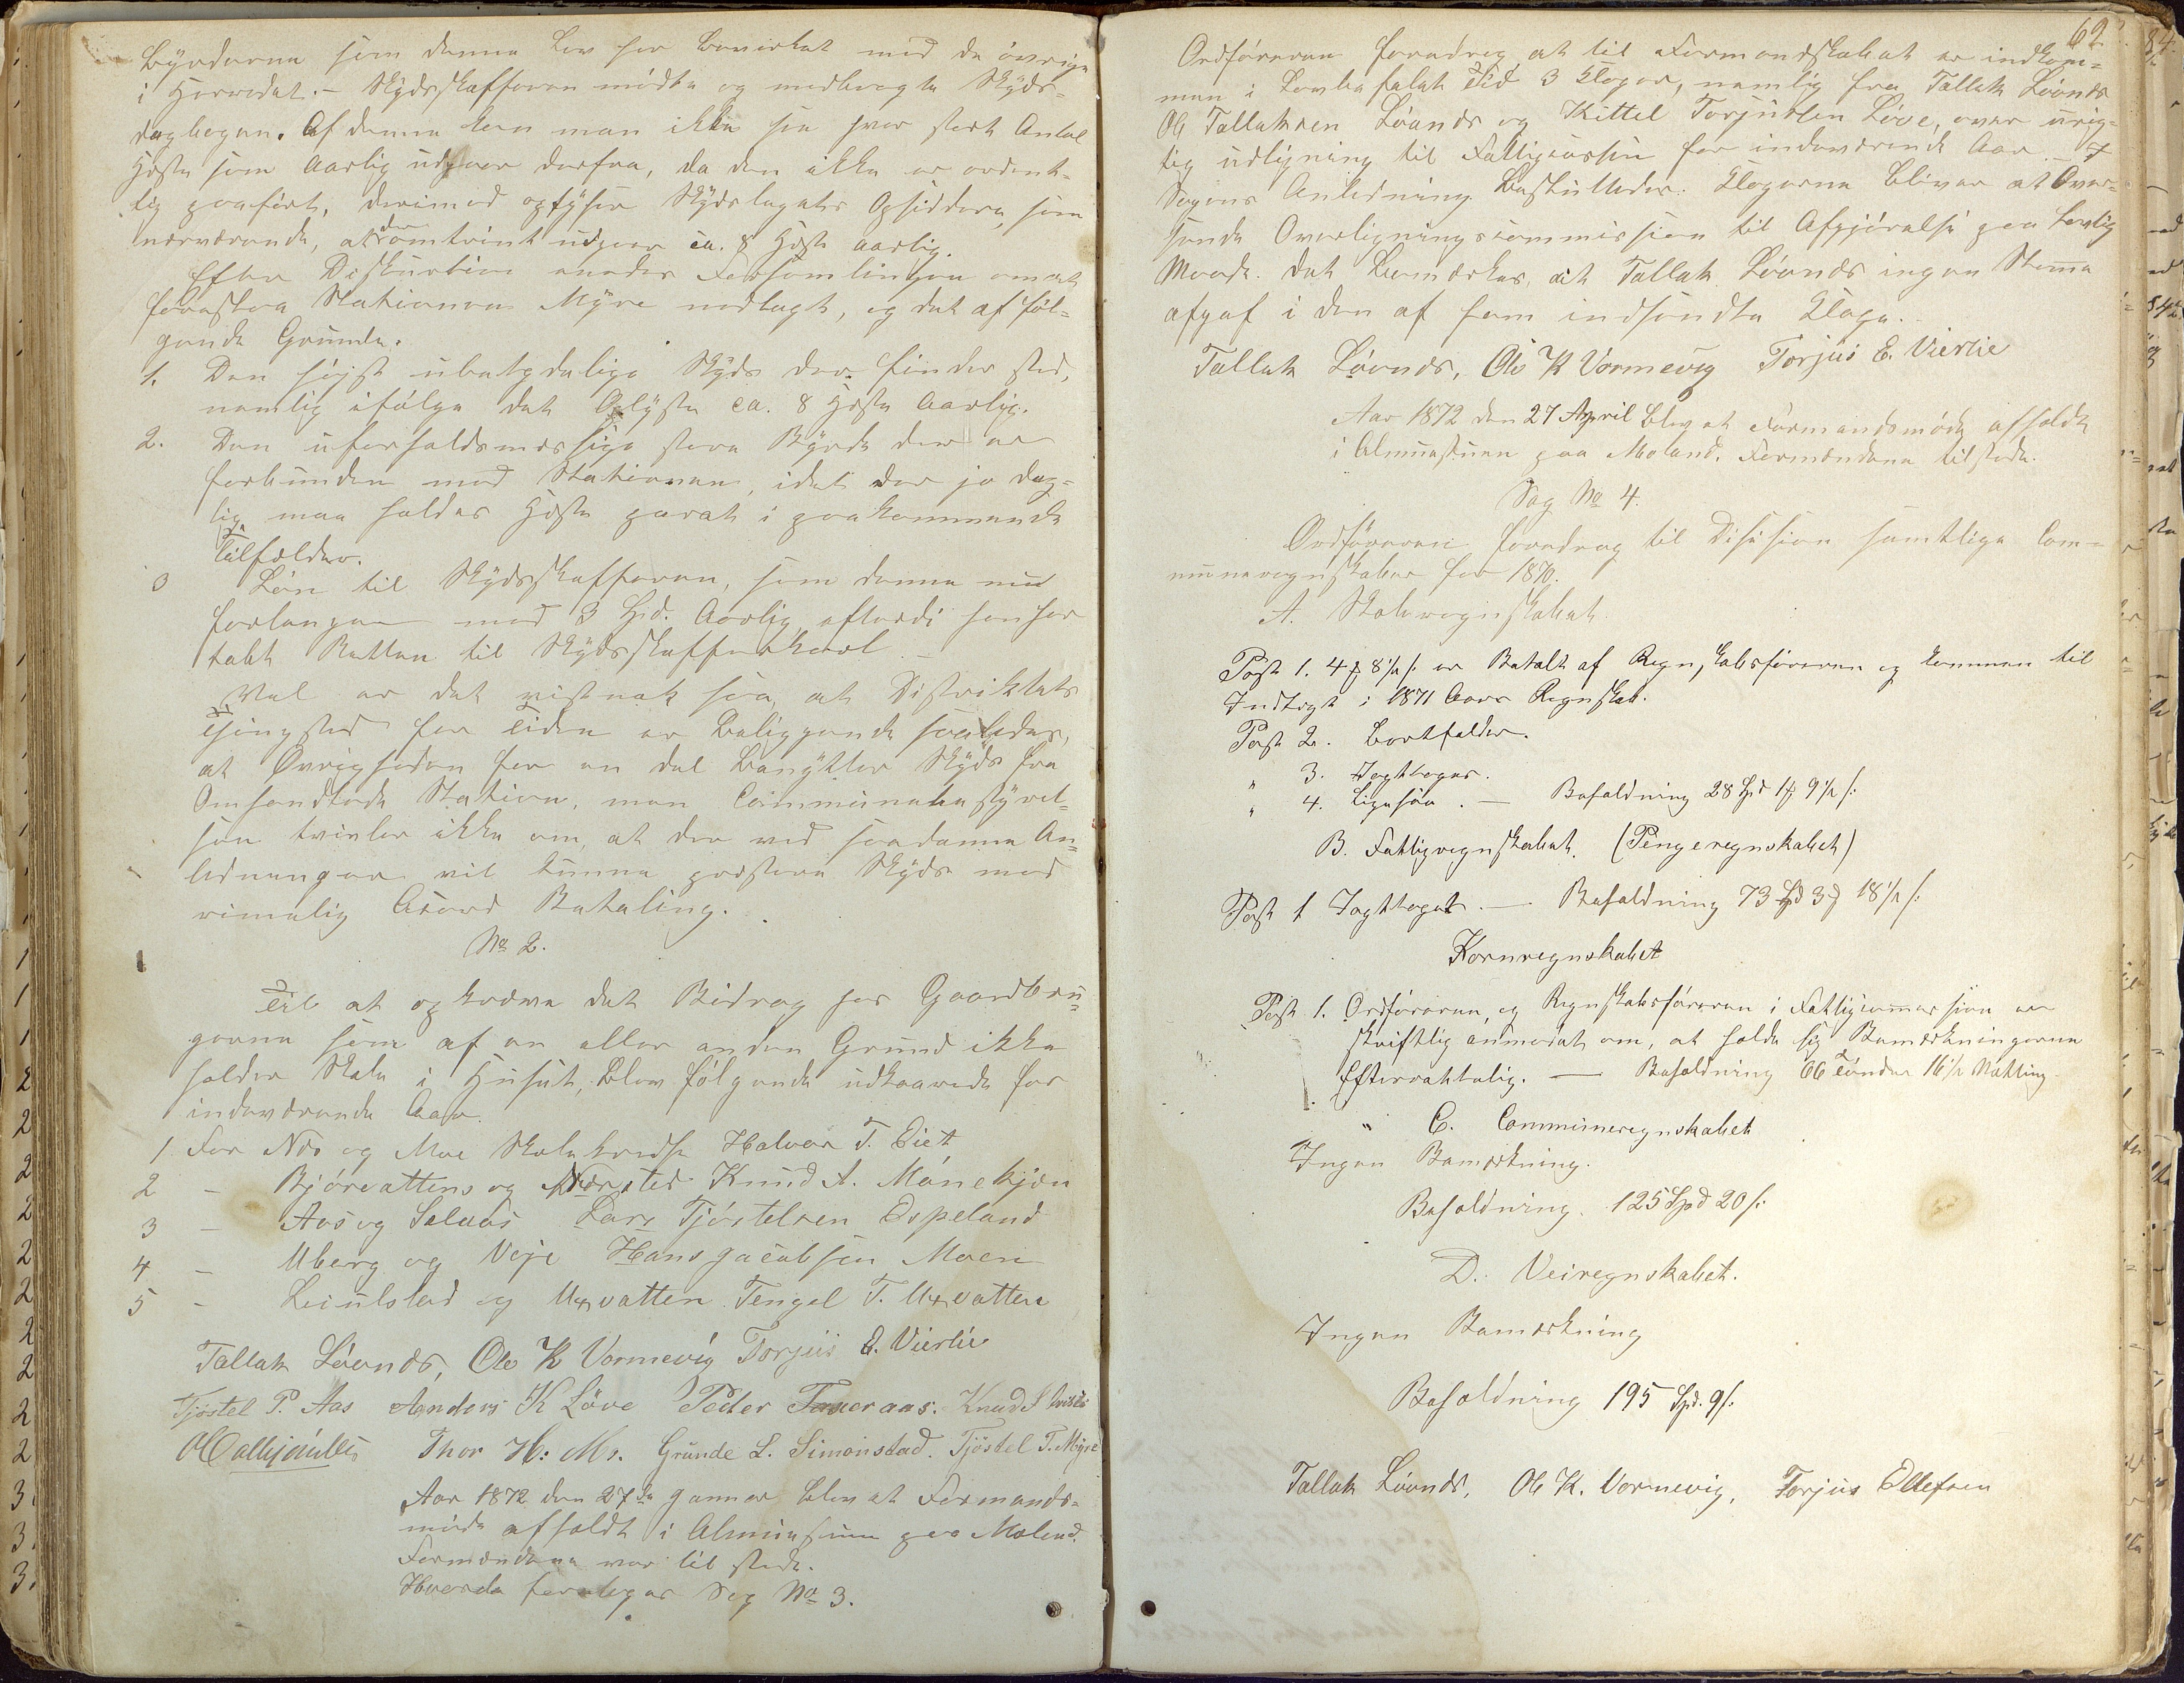 Byrderne som denne Lov har bevirket med de øvrige
i Herredet. - Skydsskafferen mødte og medbragte Skyds-
dagbogen. Af denne kan man ikke see hvor stort Antal
Heste som aarlig udgaar derfra, da den ikke er ordent-
lig paaført, derimod oplyser Skydslagets Opsiddere, som
nærværende, at der omtrent udgaar ca. 8 Heste aarlig.
Efter Diskussion enedes Forsamlingen om at
foreslaa Stationen Myre nedlagt, og det af føl-
gende Grunde.
1. Den høist ubetydelige Skyds der finder sted,
nemlig ifølge det Oplyste ca. 8 Heste aarlig.
2. Den uforholdsmessige store Byrde der er
forbunden med Stationen, idet der jo dag-
lig maa holdes Heste parat i paakommende
Tilfælder.
3 Løn til Skydsskafferen, som denne nu
forlanger med 3 Spd. Aarlig, efterdi han har
tabt Retten til Skydsskafferkarl. -
Vel er det vistnok saa, at Distriktets
Thingsted for Tiden er beliggende saaledes,
at Øvrigheden for en del benytter Skyds fra
Omhandlede Station, men Communebestyrel-
sen tvivler ikke om, at der ved saadanne An-
ledninger vil kunne præstere Skyds mod
rimelig Accord Betaling.
No 2.
Til at opkræve det Bidrag hos Gaardbru-
gerne som af en eller anden Grund ikke
holder Skole i Huset, blev følgende udkaarede for
indeværende Aar.
1 For Næs og Moe Skolekreds Halvor T. Eiet
2 - Bjørvattens og Nærsted Knud A. Mónekjæn
3 - Aas og Selaas Lars Tjøstelsen Espeland
4 - Uberg og Veje Hans Jacobsen Moen
5 - Leiulstad og Uxvatten Tengel T. Uxvatten
Tallak Lóvnds, Ole K Vormevig Torjus E. Vierlie
Tjøstel P. Aas Anders K Lóve Peder Taxeraas. Knud S
Thor H: Mo. Grunde L. Simonstad. Tjøstel T. Myre
Aar 1872 den 27de Januar blev et Formands-
møde afholdt i Almuestuen paa Moland.
Formændene var tilstede.
Hvorda foretoges Sag No 3.
62
Ordføreren foredrog, at til Formandskabet er indkom-
men i Lovbefalet Tid 3 Klager, nemlig fra Tallak Lóvnds
Ole Tallaksen Lóvnds og Kittel Torjussen Lóve, over urig-
tig udligning til Fattigcassen for indeværende Aar. - I
Sagens Anledning besluttedes: Klagerne bliver at Over-
sende Overligningscommissien til Afgjørelse paa lovlig
Maade. Det bemærkes, at Tallak Lóvnds ingen Stemme
afgaf i den af ham indsendte Klage.
Tallak Lóvnds, Ole K Vormevig Torjus E. Vierlie
Aar 1872 den 27 April blev et Formandsmøde afholdt
i Almuestuen paa Moland. Formændene tilstede.
Sag No 4.
Ordføreren foredrog til Desision samtlige Com-
muneregnskaber for 1870.
A. Skoleregnskabet.
Post 1. 4 8½ s: er Betalt af Regnskabsføreren og kommer til
Indtægt i 1871 Aars Regnskab.
Post 2. bortfalder.
" 3. Iagttages.
" 4. Ligesaa. - Beholdning 28 Spd 1 9½ s:
B. Fattigregnskabet. (Pengeregnskabet)
Post 1 Iagttaget. - Beholdning 73 Spd 3 18½ s:
Kornregnskabet
Post 1. Ordføreren, og Regnskabsføreren i Fattigcommissien er
skriftlig anmodet om, at holde sig Bemærkningerne
Efterrettelig. - Beholdning 66 Tønder 16½ Mætling
" C. Communeregnskabet
Ingen Bemærkning.
Beholdning. 125 Spd 20 s:
D. Veiregnskabet.
Ingen Bemærkning
Beholdning 195 Spd. 9 s:
Tallak Lóvnds, Ole K. Vormevig, Torjus Ellefsen